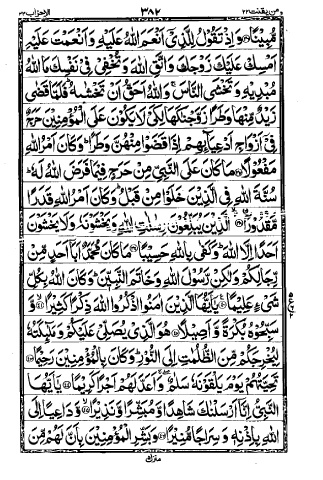 ومن يقنت ٢٢ ٣٨٢ الاحزاب ٣٣
مُّبِينًا ۞ وَإِذْ تَقُولُ لِلَّذِيْٓ اَنْعَمَ اللّٰهُ عَلَيْهِ وَاَنْعَمْتَ عَلَيْهِ
اَمْسِكْ عَلَيْكَ زَوْجَكَ وَاتَّقِ اللّٰهَ وَتُخْفِيْ فِيْ نَفْسِكَ مَا اللّٰهُ
مُبْدِيْهِ وَتَخْشَى النَّاسَ ۚ وَاللّٰهُ اَحَقُّ اَنْ تَخْشٰىهُ ؕ فَلَمَّا قَضٰى
زَيْدٌ مِّنْهَا وَطَرًا زَوَّجْنٰكَهَا لِكَيْ لَا يَكُوْنَ عَلَى الْمُؤْمِنِيْنَ حَرَجٌ
فِيْٓ اَزْوَاجِ اَدْعِيَآئِهِمْ اِذَا قَضَوْا مِنْهُنَّ وَطَرًا ؕ وَكَانَ اَمْرُ اللّٰهِ
مَفْعُوْلًا ۞ مَا كَانَ عَلَى النَّبِيِّ مِنْ حَرَجٍ فِيْمَا فَرَضَ اللّٰهُ لَهٗ ؕ
سُنَّةَ اللّٰهِ فِي الَّذِيْنَ خَلَوْا مِنْ قَبْلُ ؕ وَكَانَ اَمْرُ اللّٰهِ قَدَرًا
مَّقْدُوْرًا ۞ الَّذِيْنَ يُبَلِّغُوْنَ رِسٰلٰتِ اللّٰهِ وَيَخْشَوْنَهٗ وَلَا يَخْشَوْنَ
اَحَدًا اِلَّا اللّٰهَ ؕ وَكَفٰى بِاللّٰهِ حَسِيْبًا ۞ مَا كَانَ مُحَمَّدٌ اَبَآ اَحَدٍ مِّنْ
رِّجَالِكُمْ وَلٰكِنْ رَّسُوْلَ اللّٰهِ وَخَاتَمَ النَّبِيّٖنَ ؕ وَكَانَ اللّٰهُ بِكُلِّ
شَيْءٍ عَلِيْمًا ۞ يٰٓاَيُّهَا الَّذِيْنَ اٰمَنُوا اذْكُرُوا اللّٰهَ ذِكْرًا كَثِيْرًا ۞ وَّ
سَبِّحُوْهُ بُكْرَةً وَّاَصِيْلًا ۞ هُوَ الَّذِيْ يُصَلِّيْ عَلَيْكُمْ وَمَلٰٓئِكَتُهٗ
لِيُخْرِجَكُمْ مِّنَ الظُّلُمٰتِ اِلَى النُّوْرِ ؕ وَكَانَ بِالْمُؤْمِنِيْنَ رَحِيْمًا ۞
تَحِيَّتُهُمْ يَوْمَ يَلْقَوْنَهٗ سَلٰمٌ ۖ وَاَعَدَّ لَهُمْ اَجْرًا كَرِيْمًا ۞ يٰٓاَيُّهَا
النَّبِيُّ اِنَّآ اَرْسَلْنٰكَ شَاهِدًا وَّمُبَشِّرًا وَّنَذِيْرًا ۞ وَّدَاعِيًا اِلَى
اللّٰهِ بِاِذْنِهٖ وَسِرَاجًا مُّنِيْرًا ۞ وَبَشِّرِ الْمُؤْمِنِيْنَ بِاَنَّ لَهُمْ مِّنَ
منزل ٥